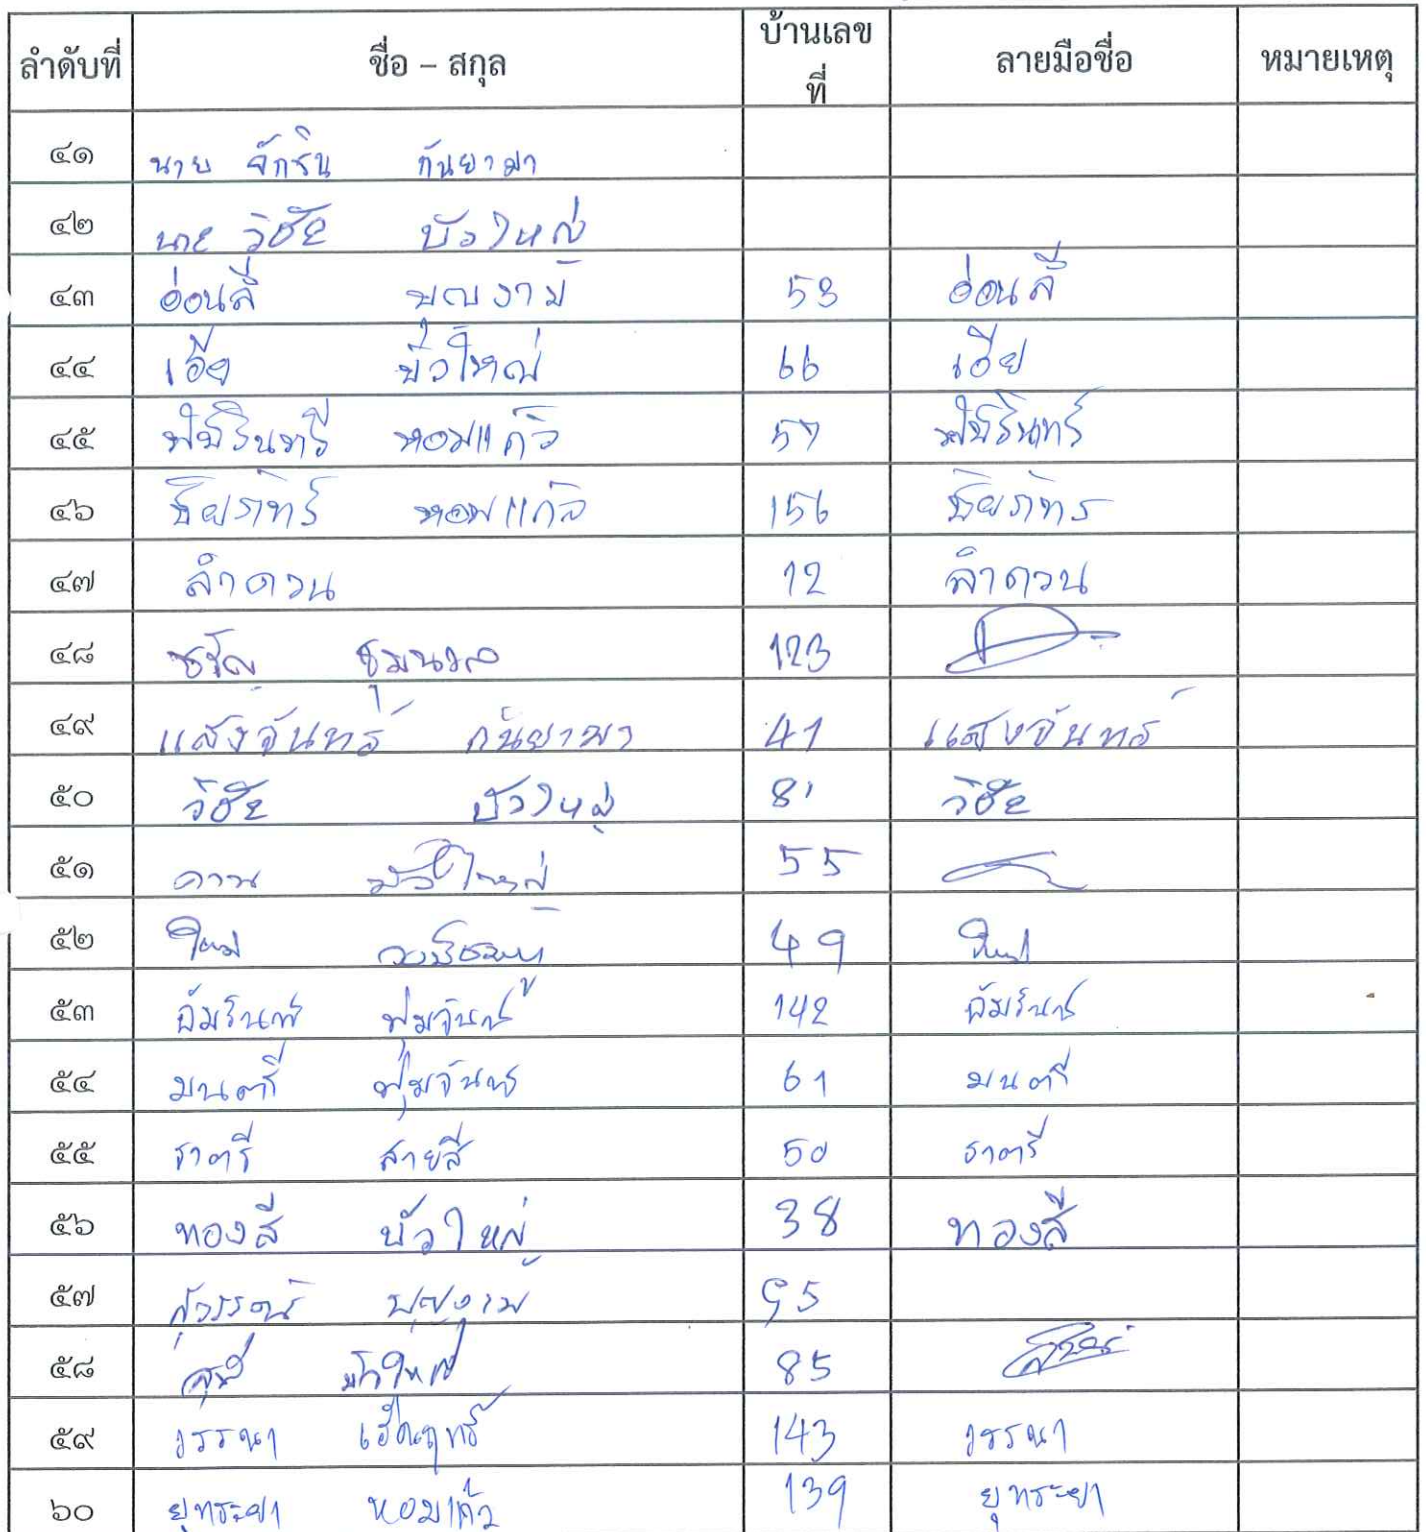 ลำดับที่ ชื่อ – สกุล บ้านเลขที่ ลายมือชื่อ หมายเหตุ
๔๑ นาย จักริน กันยามา
๔๒ นาย วิชัย บัวใหญ่
๔๓ อ่อนสี บุญงาม 53 อ่อนสี
๔๔ เอีย บัวใหญ่ 66 เอีย
๔๕ หอมแก้ว 57
๔๖ หอมแก้ว 156
๔๗ ลำดวน 12 ลำดวน
๔๘ ชุมนวล 123
๔๙ แสงจันทร์ กันยามา 41 แสงจันทร์
๕๐ วิชัย บัวใหญ่ 81 วิชัย
๕๑ คาน บัวใหญ่ 55
๕๒ ใหม่ 49 ใหม่
๕๓ อัมรินทร์ พุ่มจันทร์ 142 อัมรินทร์
๕๔ มนตรี พุ่มจันทร์ 61 มนตรี
๕๕ ราตรี สายสี 50 ราตรี
๕๖ ทองสี บัวใหญ่ 38 ทองสี
๕๗ สุวรรณ์ บุญงาม 95
๕๘ บัวใหญ่ 85
๕๙ วรรณา 143 วรรณา
๖๐ ยุทระยา หอมแก้ว 139 ยุทระยา